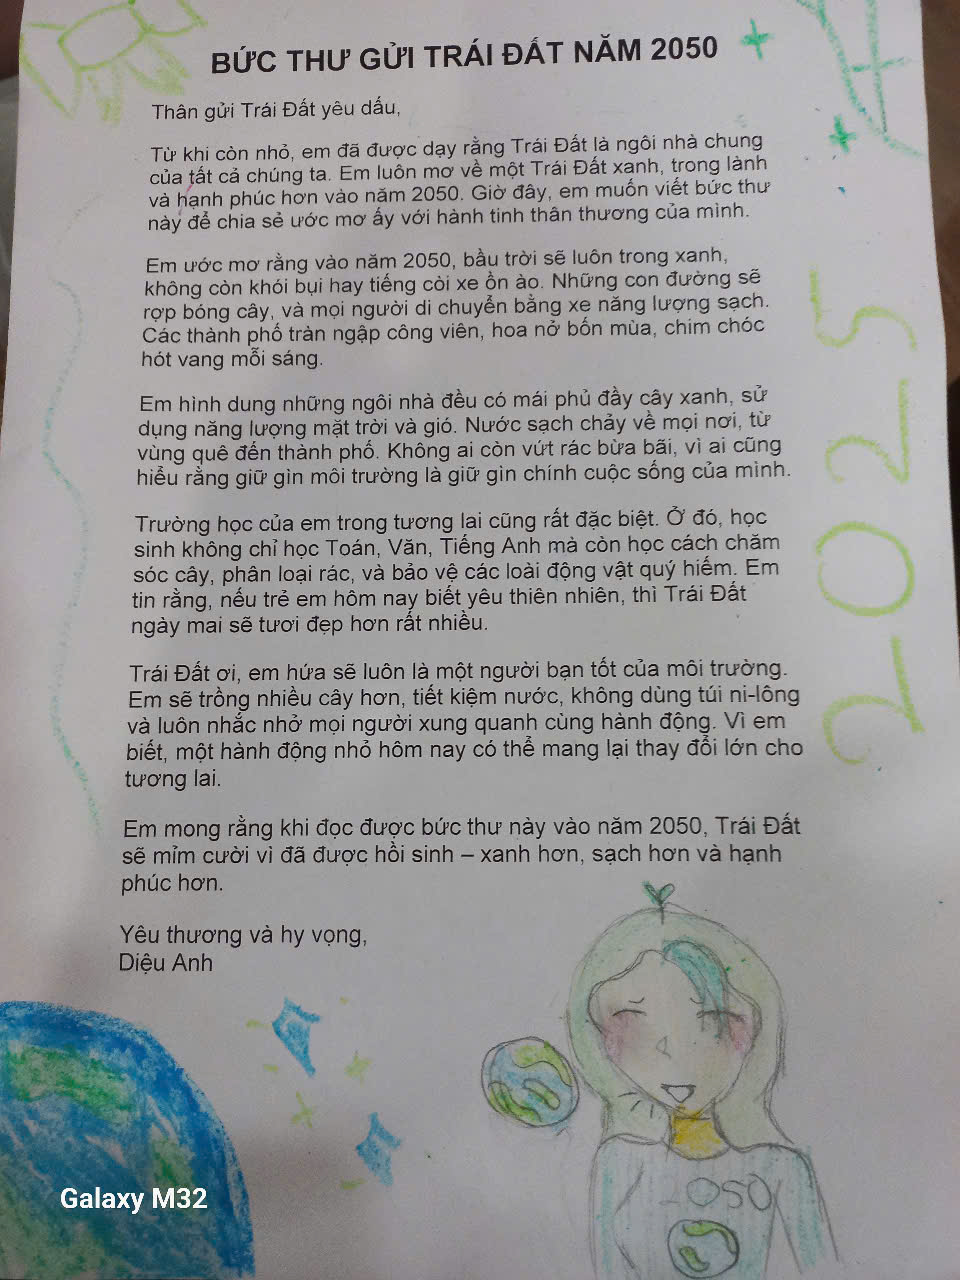 BỨC THƯ GỬI TRÁI ĐẤT NĂM 2050
Thân gửi Trái Đất yêu dấu,
Từ khi còn nhỏ, em đã được dạy rằng Trái Đất là ngôi nhà chung
của tất cả chúng ta. Em luôn mơ về một Trái Đất xanh, trong lành
và hạnh phúc hơn vào năm 2050. Giờ đây, em muốn viết bức thư
này để chia sẻ ước mơ ấy với hành tinh thân thương của mình.
Em ước mơ rằng vào năm 2050, bầu trời sẽ luôn trong xanh,
không còn khói bụi hay tiếng còi xe ồn ào. Những con đường sẽ
rợp bóng cây, và mọi người di chuyển bằng xe năng lượng sạch.
Các thành phố tràn ngập công viên, hoa nở bốn mùa, chim chóc
hót vang mỗi sáng.
Em hình dung những ngôi nhà đều có mái phủ đầy cây xanh, sử
dụng năng lượng mặt trời và gió. Nước sạch chảy về mọi nơi, từ
vùng quê đến thành phố. Không ai còn vứt rác bừa bãi, vì ai cũng
hiểu rằng giữ gìn môi trường là giữ gìn chính cuộc sống của mình.
Trường học của em trong tương lai cũng rất đặc biệt. Ở đó, học
sinh không chỉ học Toán, Văn, Tiếng Anh mà còn học cách chăm
sóc cây, phân loại rác, và bảo vệ các loài động vật quý hiếm. Em
tin rằng, nếu trẻ em hôm nay biết yêu thiên nhiên, thì Trái Đất
ngày mai sẽ tươi đẹp hơn rất nhiều.
Trái Đất ơi, em hứa sẽ luôn là một người bạn tốt của môi trường.
Em sẽ trồng nhiều cây hơn, tiết kiệm nước, không dùng túi ni-lông
và luôn nhắc nhở mọi người xung quanh cùng hành động. Vì em
biết, một hành động nhỏ hôm nay có thể mang lại thay đổi lớn cho
tương lai.
Em mong rằng khi đọc được bức thư này vào năm 2050, Trái Đất
sẽ mỉm cười vì đã được hồi sinh – xanh hơn, sạch hơn và hạnh
phúc hơn.
Yêu thương và hy vọng,
Diệu Anh
2025
2050
Galaxy M32